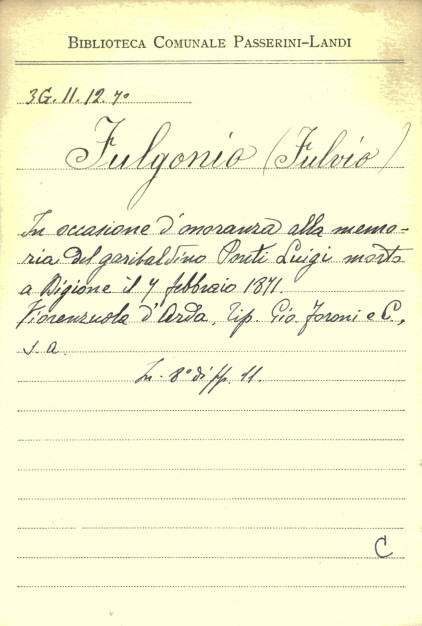 BIBLIOTECA COMUNALE PASSERINI-LANDI
3G. 11. 12. 7º
Fulgonio (Fulvio)
In occasione d'onoranza alla memo-
ria del garibaldino Ponti Luigi morto
a Digione il 7 febbraio 1871.
Fiorenzuola d'Arda, Tip. Gio. Foroni e C.,
s. a.
In- 8º di pp. 11.
C